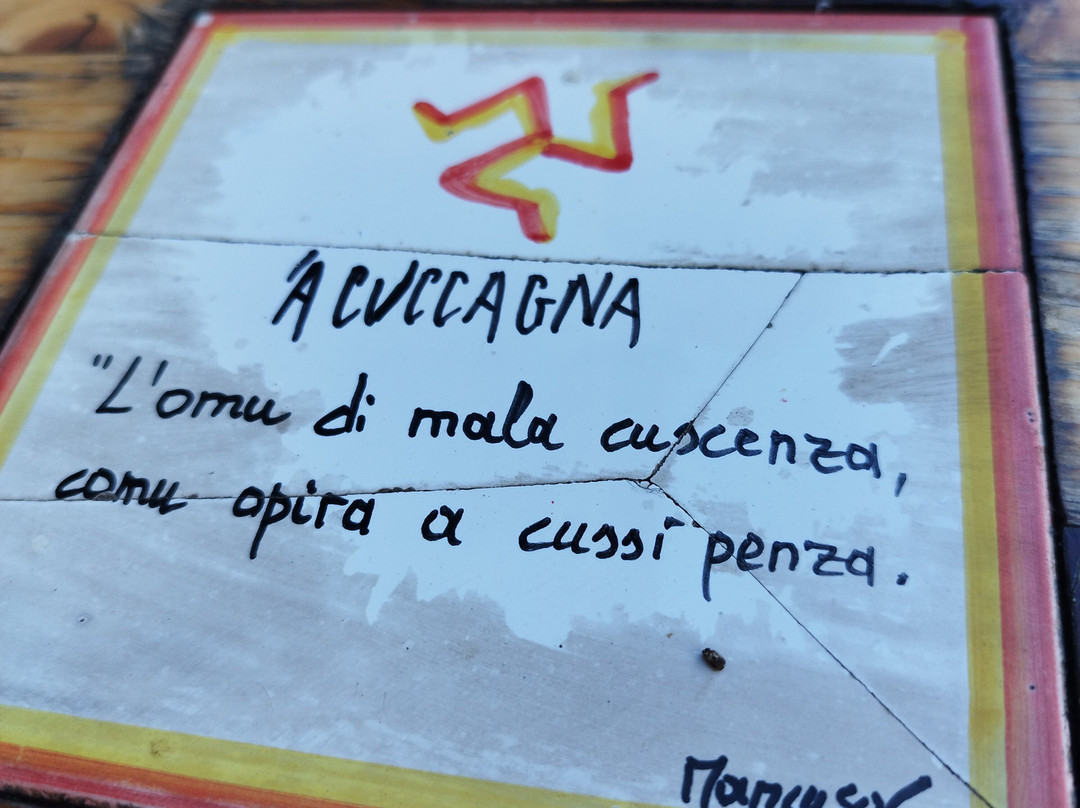 'A CUCCAGNA
"L'omu di mala cuscenza,
comu opira a cussì penza.